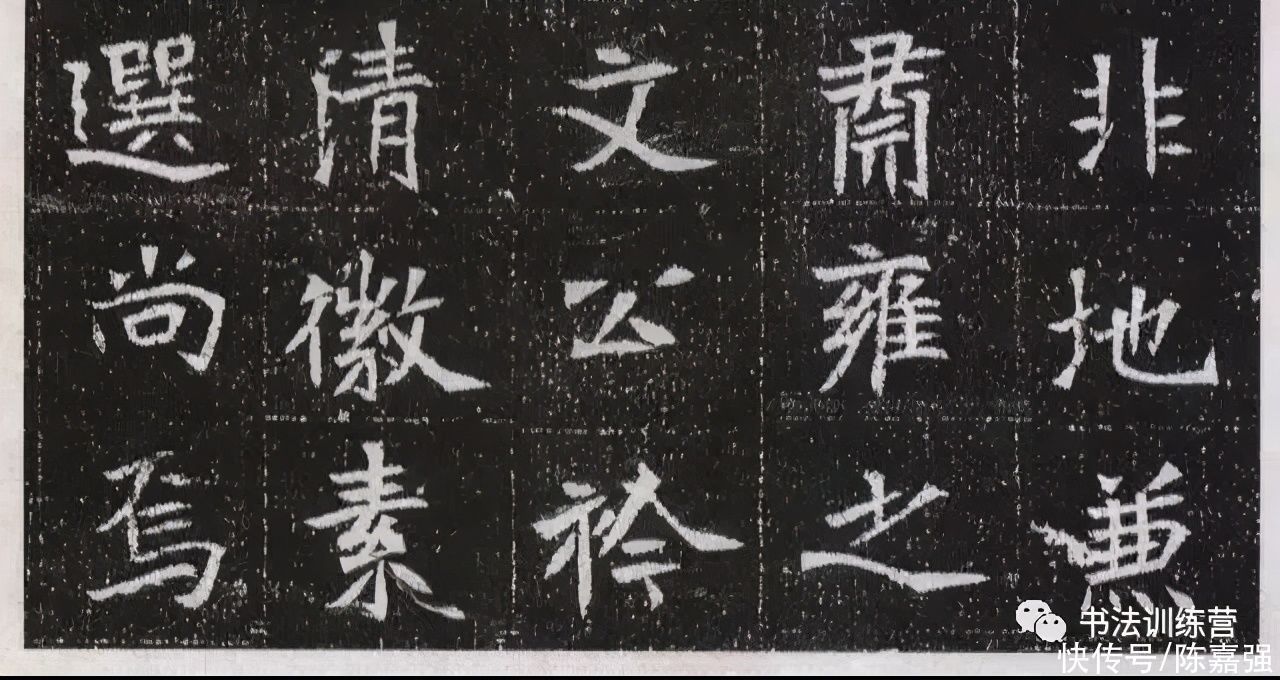 非地兼
肅雍之
文公衿
清徽素
選尚焉
书法训练营
快传号/陈嘉强